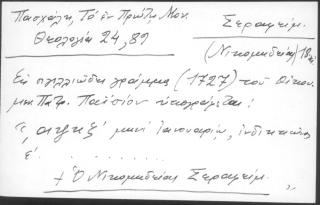 Πασχάλη, Τό ἐν Πρώτῃ Μον.
Θεολογία 24, 89
Σεραφείμ.
(Νικομηδείας) 18
Ἐν σιγιλλιώδει γράμματι (1727) τοῦ Οἰκου-
μεν. Πατρ. Παϊσίου ὑπογράφεται:
"͵αψκζ' μηνί Ἰανουαρίῳ, ἰνδικτιῶνος
ε΄. . . . . . . .
+ Ὁ Νικομηδείας Σεραφείμ.